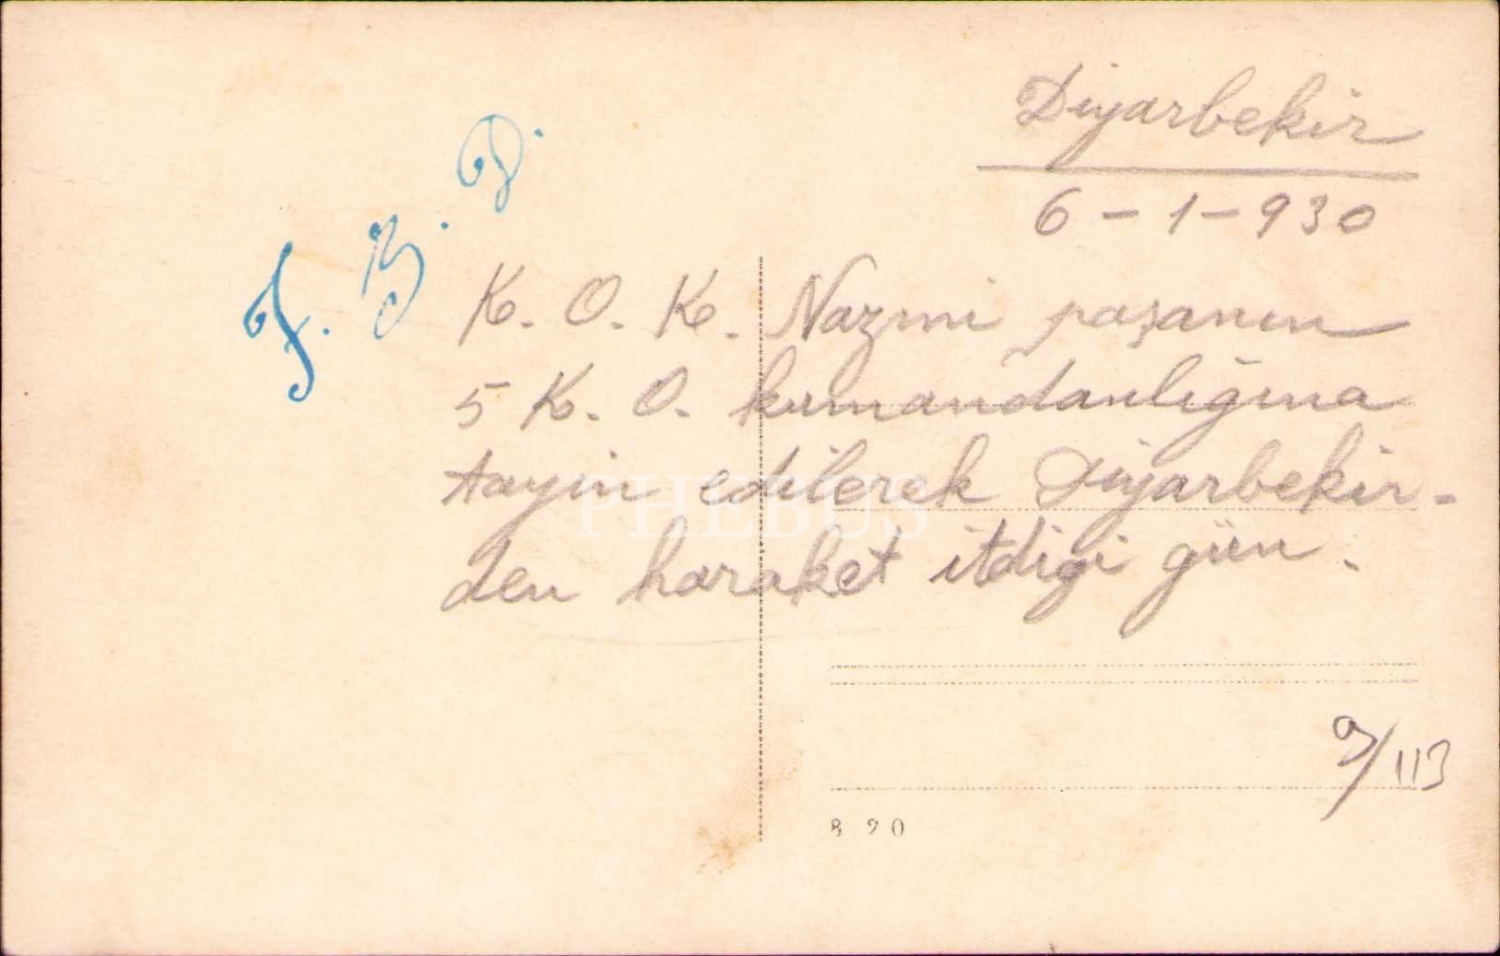 Diyarbekir
6-1-930
K. O. K. Nazmi paşanın
5 K. O. kumandanlığına
tayin edilerek Diyarbekir-
den haraket itdigi gün.
PHEBUS
9/113
820